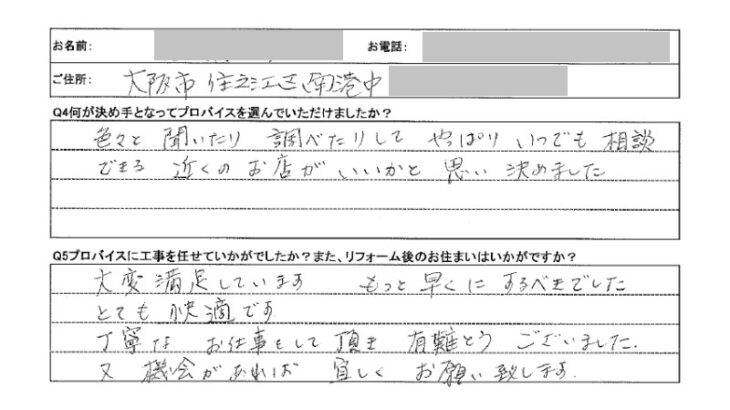 お名前: お電話:
ご住所: 大阪市住之江区南港中
Q4何が決め手となってプロバイスを選んでいただけましたか?
色々と 聞いたり 調べたりして やっぱり いつでも 相談
できる 近くの お店が いいかと 思い 決めました
Q5プロバイスに工事を任せていかがでしたか?また、リフォーム後のお住まいはいかがですか?
大変 満足しています もっと 早くに するべきでした
とても 快適です
丁寧な お仕事をして 頂き 有難とう ございました.
又 機会があれば 宜しく お願い致します.